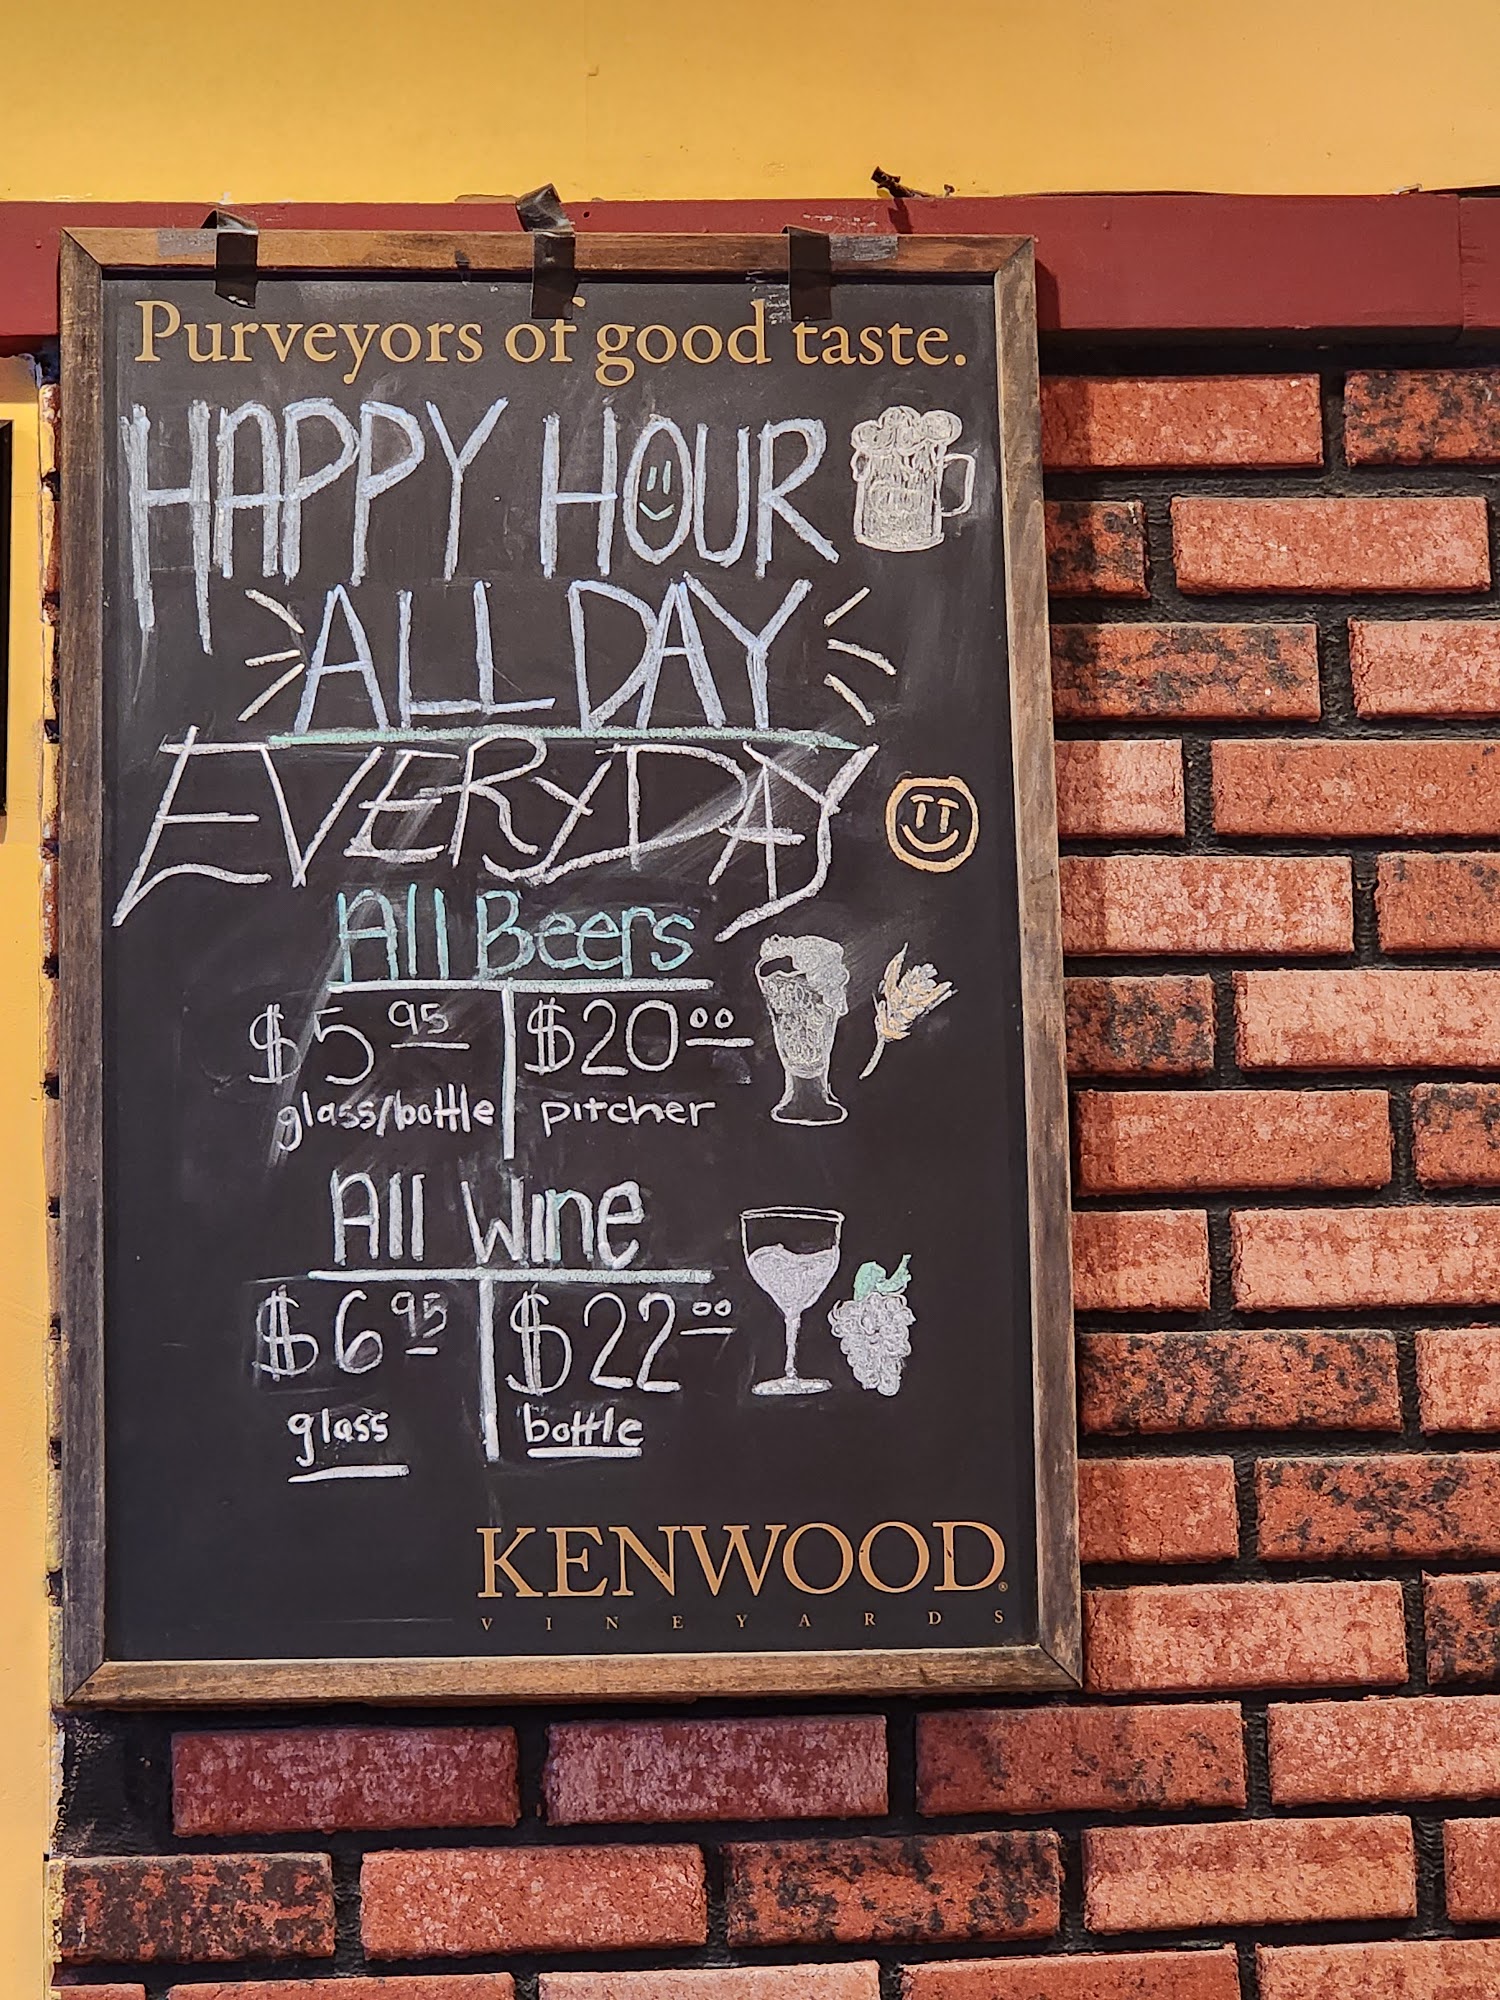 Purveyors of good taste.
HAPPY HOUR
ALL DAY
EVERYDAY
All Beers
$5 95 $20 00
glass/bottle pitcher
All Wine
$6 95 $22 00
glass bottle
KENWOOD®
VINEYARDS